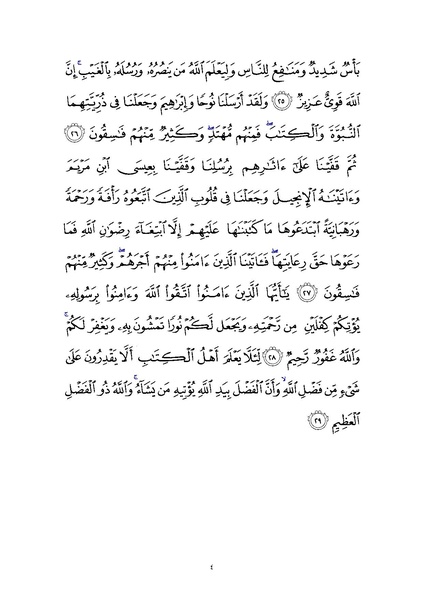 بَأْسٌ شَدِيدٌ وَمَنَٰفِعُ لِلنَّاسِ وَلِيَعْلَمَ ٱللَّهُ مَن يَنصُرُهُۥ وَرُسُلَهُۥ بِٱلْغَيْبِ ۚ إِنَّ
ٱللَّهَ قَوِىٌّ عَزِيزٌ ۝٢٥ وَلَقَدْ أَرْسَلْنَا نُوحًا وَإِبْرَٰهِيمَ وَجَعَلْنَا فِى ذُرِّيَّتِهِمَا
ٱلنُّبُوَّةَ وَٱلْكِتَٰبَ ۖ فَمِنْهُم مُّهْتَدٍ ۖ وَكَثِيرٌ مِّنْهُمْ فَٰسِقُونَ ۝٢٦
ثُمَّ قَفَّيْنَا عَلَىٰٓ ءَاثَٰرِهِم بِرُسُلِنَا وَقَفَّيْنَا بِعِيسَى ٱبْنِ مَرْيَمَ
وَءَاتَيْنَٰهُ ٱلْإِنجِيلَ وَجَعَلْنَا فِى قُلُوبِ ٱلَّذِينَ ٱتَّبَعُوهُ رَأْفَةً وَرَحْمَةً
وَرَهْبَانِيَّةً ٱبْتَدَعُوهَا مَا كَتَبْنَٰهَا عَلَيْهِمْ إِلَّا ٱبْتِغَآءَ رِضْوَٰنِ ٱللَّهِ فَمَا
رَعَوْهَا حَقَّ رِعَايَتِهَا ۖ فَـَٔاتَيْنَا ٱلَّذِينَ ءَامَنُوا۟ مِنْهُمْ أَجْرَهُمْ ۖ وَكَثِيرٌ مِّنْهُمْ
فَٰسِقُونَ ۝٢٧ يَٰٓأَيُّهَا ٱلَّذِينَ ءَامَنُوا۟ ٱتَّقُوا۟ ٱللَّهَ وَءَامِنُوا۟ بِرَسُولِهِۦ
يُؤْتِكُمْ كِفْلَيْنِ مِن رَّحْمَتِهِۦ وَيَجْعَل لَّكُمْ نُورًا تَمْشُونَ بِهِۦ وَيَغْفِرْ لَكُمْ ۚ
وَٱللَّهُ غَفُورٌ رَّحِيمٌ ۝٢٨ لِّئَلَّا يَعْلَمَ أَهْلُ ٱلْكِتَٰبِ أَلَّا يَقْدِرُونَ عَلَىٰ
شَىْءٍ مِّن فَضْلِ ٱللَّهِ ۙ وَأَنَّ ٱلْفَضْلَ بِيَدِ ٱللَّهِ يُؤْتِيهِ مَن يَشَآءُ ۚ وَٱللَّهُ ذُو ٱلْفَضْلِ
ٱلْعَظِيمِ ۝٢٩
٤